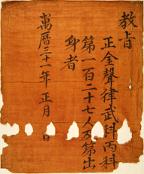 教旨
正全聲律武科丙科
第一百二十七人及第出
身者
萬曆三十一年正月 日